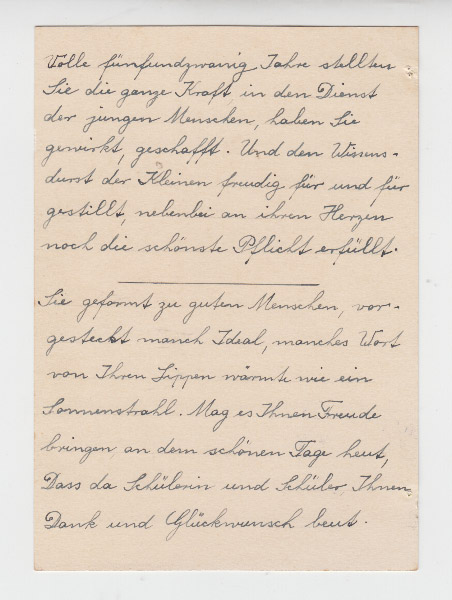 Volle fünfundzwanzig Jahre stellten
Sie die ganze Kraft in den Dienst
der jungen Menschen, haben Sie
gewirkt, geschafft. Und den Wissens-
durst der Kleinen freudig für und für
gestillt, nebenbei an ihren Herzen
noch die schönste Pflicht erfüllt.
Sie geformt zu guten Menschen, vor-
gesteckt manch Ideal, manches Wort
von Ihren Lippen wärmte wie ein
Sonnenstrahl. Mag es Ihnen Freude
bringen an dem schönen Tage heut,
Dass da Schülerin und Schüler Ihnen
Dank und Glückwunsch beut.